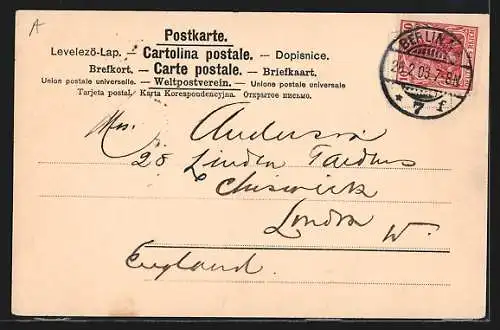 A
Postkarte.
Levelező-Lap. — Cartolina postale. — Dopisnice.
Brefkort. — Carte postale. — Briefkaart.
Union postale universelle. — Weltpostverein. — Unione postale universale
Tarjeta postal. Karta Korespondencyjna. Открытое письмо.
BERLIN
2.03.7-8N.
* 7 f
Mrs. Anderson
28 Linden Gardens
Chiswick
London W.
England.